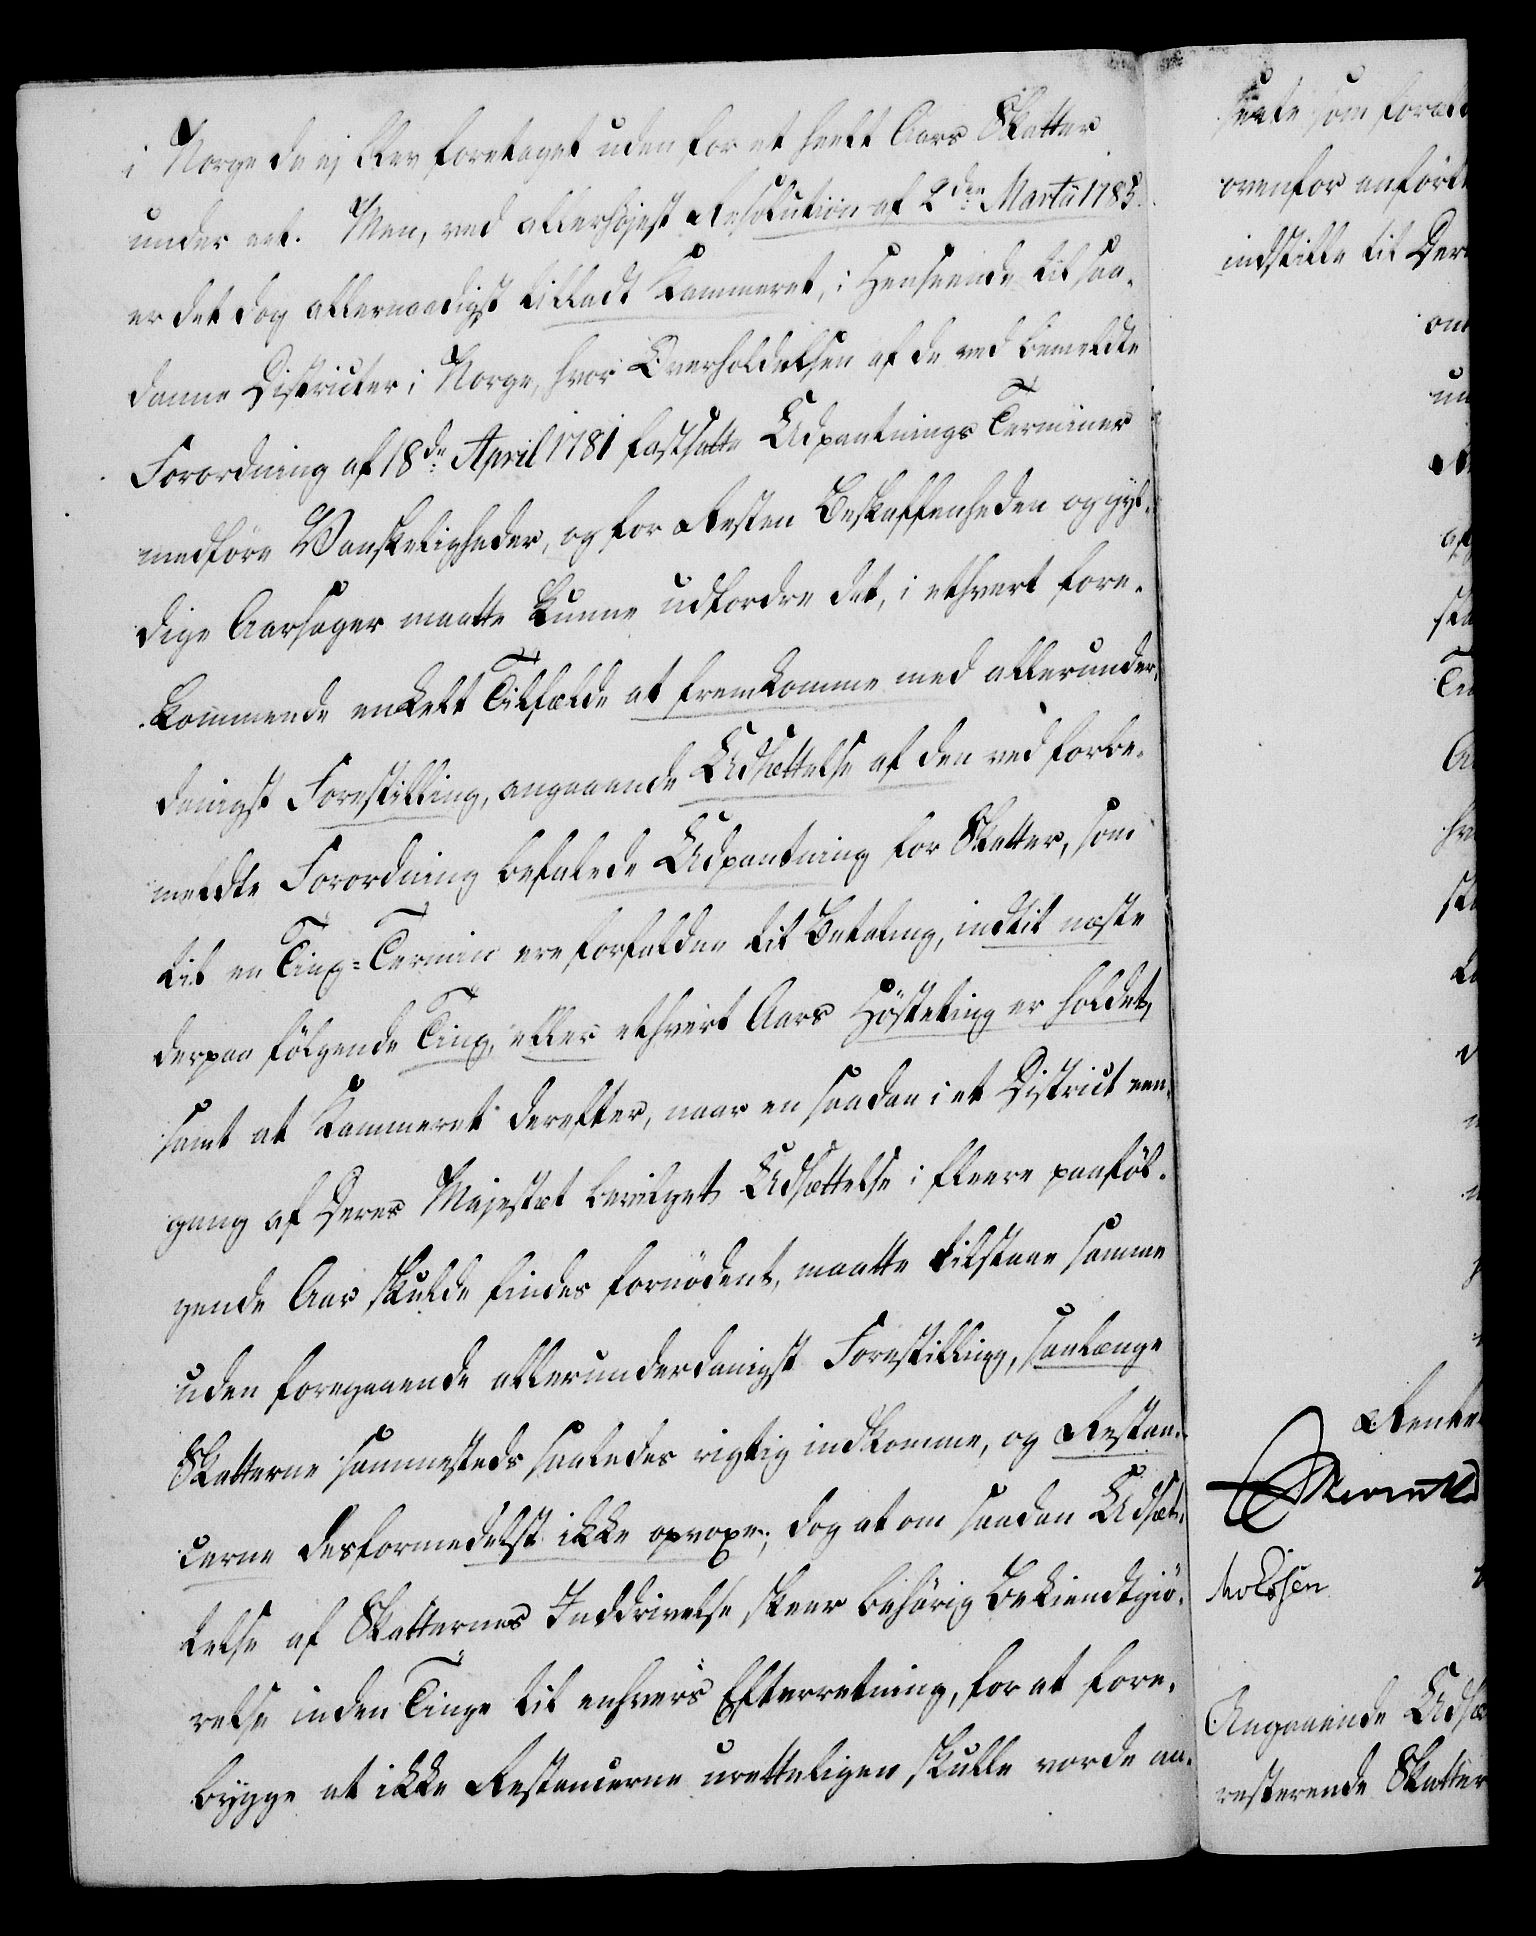 i Norge da ej blev foretaget uden for et heelt Aars Skatter
under eet. Men, ved allerhøjest Resolution af 2den Martii 1785.
er det dog allernaadigst tilladt Kammeret, i Henseende til saa-
danne Districter i Norge, hvor Overholdelsen af de ved bemeldte
Forordning af 18de April 1781 fastsatte Udpantnings Terminer
medføre Vanskeligheder, og for Resten Beskaffenheden og gyl-
dige Aarsager maatte kunne udfordre det, i ethvert fore-
kommende enkelt Tilfælde at fremkomme med allerunder-
danigst Forestilling, angaaende Udsættelse af den ved forbe-
meldte Forordning befalede Udpantning for Skatter, som
til en Ting-Termin ere forfaldne til Betaling, indtil næste
derpaa følgende Ting, eller ethvert Aars Høsteting er holdet,
samt at Kammeret derefter, naar en saadan i et District een-
gang af Deres Majestæt bevilget Udsættelse i fleere paaføl-
gende Aar skulde findes fornødent, maatte tilstaae samme
uden foregaaende allerunderdanigst Forestilling, saalænge
Skatterne sammesteds saaledes rigtig indkomme, og Restan-
cerne desformedelst ikke opvoxe; dog at om saadan Udsæt-
telse af Skatternes Inddrivelse skeer behørig Bekiendtgiø-
relse inden Tinge til enhvers Efterretning, for at fore-
bygge at ikke Restancerne uretteligen skulle vorde an-
som foran
ovenfor anførte
indstille til Der
om
un
af
ska
Tin
hv
Rente
Angaaende Udsæ
resterende Skatter